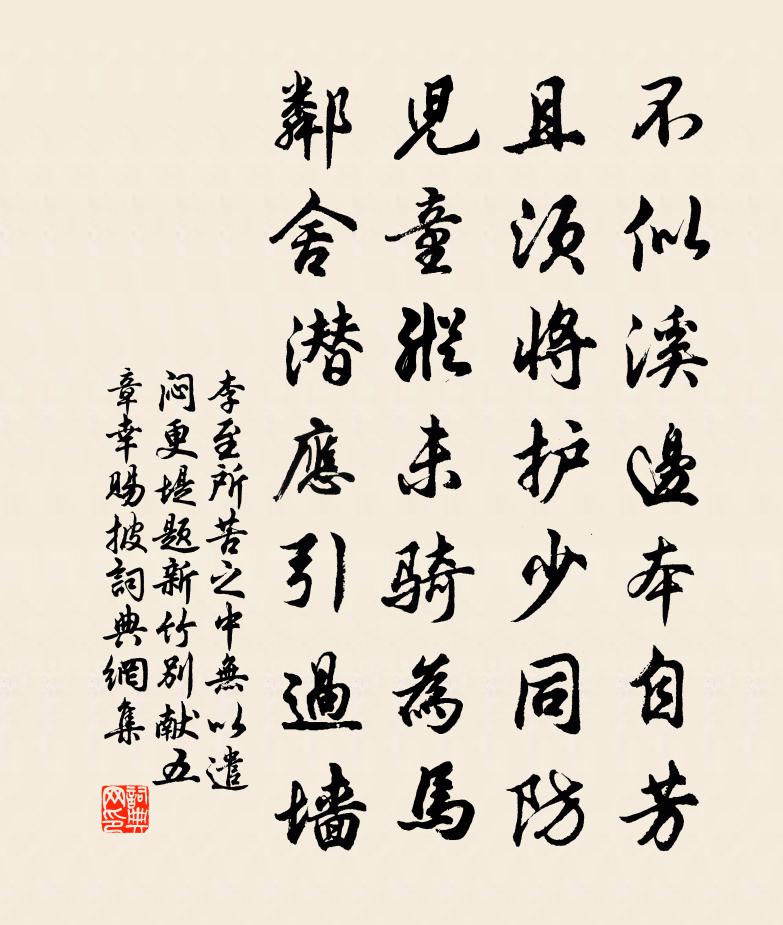 不似溪邊本自芳
且須将护少同防
児童縱未騎為馬
鄰舍潜應引過墻
李至所苦之中無以遣
闷更堤题新竹别献五
章幸賜披詞典網集
詞典网印